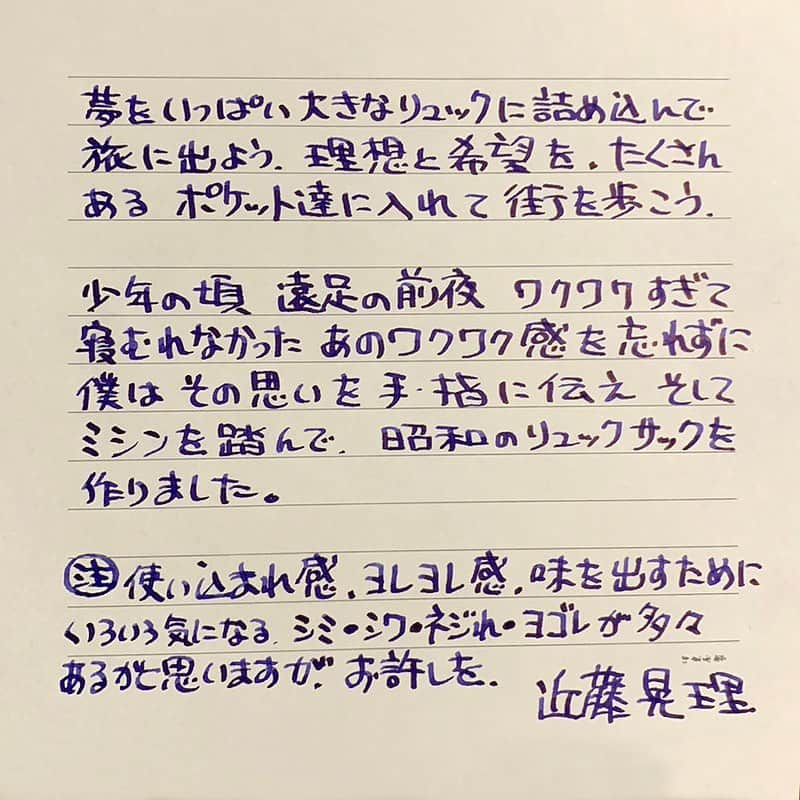 夢をいっぱい大きなリュックに詰め込んで
旅に出よう。理想と希望を、たくさん
ある ポケット達に入れて 街を歩こう。
少年の頃 遠足の前夜 ワクワクすぎて
寝むれなかった あのワクワク感を忘れずに
僕は その思いを 手・指に伝え そして
ミシンを踏んで、昭和のリュックサックを
作りました。
㊟使い込まれ感、ヨレヨレ感、味を出すために
いろいろ気になる、シミ・シワ・ネジれ・ヨゴレが多々
あるかと思いますが、お許しを。
近藤晃理